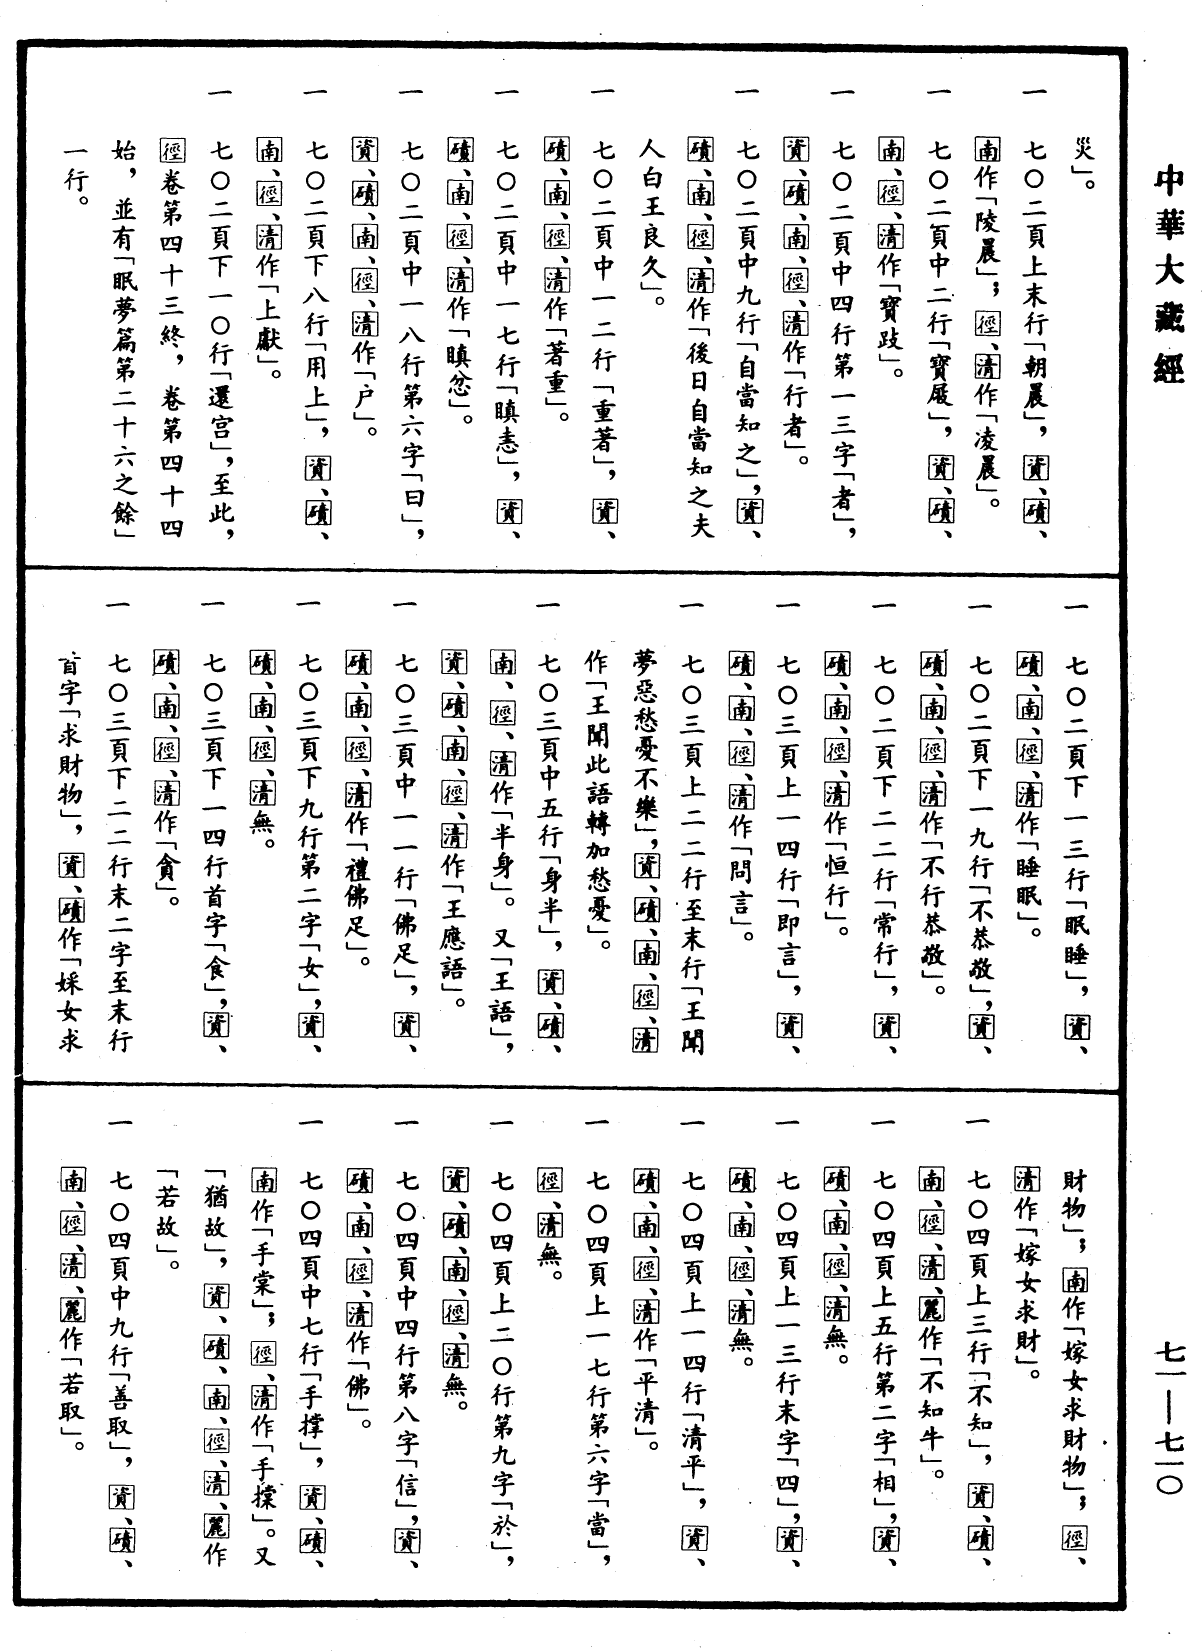 中華大藏經
七一—七一〇
災」。
一 七〇二頁上末行「朝晨」，資、磧、
南作「陵晨」；徑、清作「凌晨」。
一 七〇二頁中二行「寶屐」，資、磧、
南、徑、清作「寶跂」。
一 七〇二頁中四行第一三字「者」，
資、磧、南、徑、清作「行者」。
一 七〇二頁中九行「自當知之」，資、
磧、南、徑、清作「後日自當知之夫
人白王良久」。
一 七〇二頁中一二行「重著」，資、
磧、南、徑、清作「著重」。
一 七〇二頁中一七行「瞋恚」，資、
磧、南、徑、清作「瞋忿」。
一 七〇二頁中一八行第六字「曰」，
資、磧、南、徑、清作「户」。
一 七〇二頁下八行「用上」，資、磧、
南、徑、清作「上獻」。
一 七〇二頁下一〇行「還宮」，至此，
徑卷第四十三終，卷第四十四
始，並有「眠夢篇第二十六之餘」
一行。
一 七〇二頁下一三行「眠睡」，資、
磧、南、徑、清作「睡眠」。
一 七〇二頁下一九行「不恭敬」，資、
磧、南、徑、清作「不行恭敬」。
一 七〇二頁下二二行「常行」，資、
磧、南、徑、清作「恒行」。
一 七〇三頁上一四行「即言」，資、
磧、南、徑、清作「問言」。
一 七〇三頁上二二行至末行「王聞
夢惡愁憂不樂」，資、磧、南、徑、清
作「王聞此語轉加愁憂」。
一 七〇三頁中五行「身半」，資、磧、
南、徑、清作「半身」。又「王語」，
資、磧、南、徑、清作「王應語」。
一 七〇三頁中一一行「佛足」，資、
磧、南、徑、清作「禮佛足」。
一 七〇三頁下九行第二字「女」，資、
磧、南、徑、清無。
一 七〇三頁下一四行首字「食」，資、
磧、南、徑、清作「貪」。
一 七〇三頁下二二行末二字至末行
首字「求財物」，資、磧作「婇女求
財物」；南作「嫁女求財物」；徑、
清作「嫁女求財」。
一 七〇四頁上三行「不知」，資、磧、
南、徑、清、麗作「不知牛」。
一 七〇四頁上五行第二字「相」，資、
磧、南、徑、清無。
一 七〇四頁上一三行末字「四」，資、
磧、南、徑、清無。
一 七〇四頁上一四行「清平」，資、
磧、南、徑、清作「平清」。
一 七〇四頁上一七行第六字「當」，
徑、清無。
一 七〇四頁上二〇行第九字「於」，
資、磧、南、徑、清無。
一 七〇四頁中四行第八字「信」，資、
磧、南、徑、清作「佛」。
一 七〇四頁中七行「手撑」，資、磧、
南作「手棠」；徑、清作「手㨶」。又
「猶故」，資、磧、南、徑、清、麗作
「若故」。
一 七〇四頁中九行「善取」，資、磧、
南、徑、清、麗作「若取」。